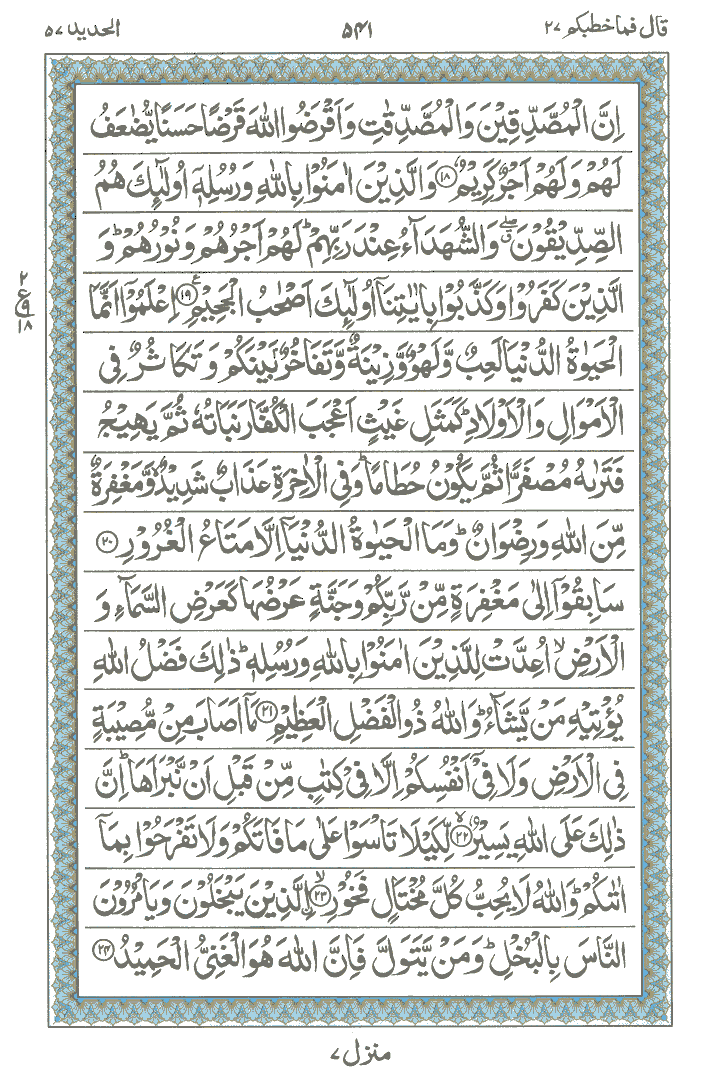 قال فماخطبكم ٢٧ ۵۴۱ الحديد ٥٧
اِنَّ الْمُصَّدِّقِيْنَ وَالْمُصَّدِّقٰتِ وَاَقْرَضُوا اللّٰهَ قَرْضًا حَسَنًا يُّضٰعَفُ
لَهُمْ وَلَهُمْ اَجْرٌ كَرِيْمٌ ۝١٨ وَالَّذِيْنَ اٰمَنُوْا بِاللّٰهِ وَرُسُلِهٖۤ اُولٰٓئِكَ هُمُ
الصِّدِّيْقُوْنَ ۖۗ وَالشُّهَدَآءُ عِنْدَ رَبِّهِمْ ؕ لَهُمْ اَجْرُهُمْ وَنُوْرُهُمْ ؕ وَ
الَّذِيْنَ كَفَرُوْا وَكَذَّبُوْا بِاٰيٰتِنَاۤ اُولٰٓئِكَ اَصْحٰبُ الْجَحِيْمِ ۝١٩ اِعْلَمُوْۤا اَنَّمَا
٢ ع ٩ ١٨
الْحَيٰوةُ الدُّنْيَا لَعِبٌ وَّلَهْوٌ وَّزِيْنَةٌ وَّتَفَاخُرٌۢ بَيْنَكُمْ وَتَكَاثُرٌ فِى
الْاَمْوَالِ وَالْاَوْلَادِ ؕ كَمَثَلِ غَيْثٍ اَعْجَبَ الْكُفَّارَ نَبَاتُهٗ ثُمَّ يَهِيْجُ
فَتَرٰىهُ مُصْفَرًّا ثُمَّ يَكُوْنُ حُطَامًا ؕ وَفِى الْاٰخِرَةِ عَذَابٌ شَدِيْدٌ ۙ وَّمَغْفِرَةٌ
مِّنَ اللّٰهِ وَرِضْوَانٌ ؕ وَمَا الْحَيٰوةُ الدُّنْيَاۤ اِلَّا مَتَاعُ الْغُرُوْرِ ۝٢٠
سَابِقُوْۤا اِلٰى مَغْفِرَةٍ مِّنْ رَّبِّكُمْ وَجَنَّةٍ عَرْضُهَا كَعَرْضِ السَّمَآءِ وَ
الْاَرْضِ ۙ اُعِدَّتْ لِلَّذِيْنَ اٰمَنُوْا بِاللّٰهِ وَرُسُلِهٖ ؕ ذٰلِكَ فَضْلُ اللّٰهِ
يُؤْتِيْهِ مَنْ يَّشَآءُ ؕ وَاللّٰهُ ذُو الْفَضْلِ الْعَظِيْمِ ۝٢١ مَاۤ اَصَابَ مِنْ مُّصِيْبَةٍ
فِى الْاَرْضِ وَلَا فِىْۤ اَنْفُسِكُمْ اِلَّا فِىْ كِتٰبٍ مِّنْ قَبْلِ اَنْ نَّبْرَاَهَا ؕ اِنَّ
ذٰلِكَ عَلَى اللّٰهِ يَسِيْرٌ ۝٢٢ لِّكَيْلَا تَاْسَوْا عَلٰى مَا فَاتَكُمْ وَلَا تَفْرَحُوْا بِمَاۤ
اٰتٰىكُمْ ؕ وَاللّٰهُ لَا يُحِبُّ كُلَّ مُخْتَالٍ فَخُوْرِ ۝٢٣ اِ۟لَّذِيْنَ يَبْخَلُوْنَ وَيَاْمُرُوْنَ
النَّاسَ بِالْبُخْلِ ؕ وَمَنْ يَّتَوَلَّ فَاِنَّ اللّٰهَ هُوَ الْغَنِىُّ الْحَمِيْدُ ۝٢٤
منزل ٧